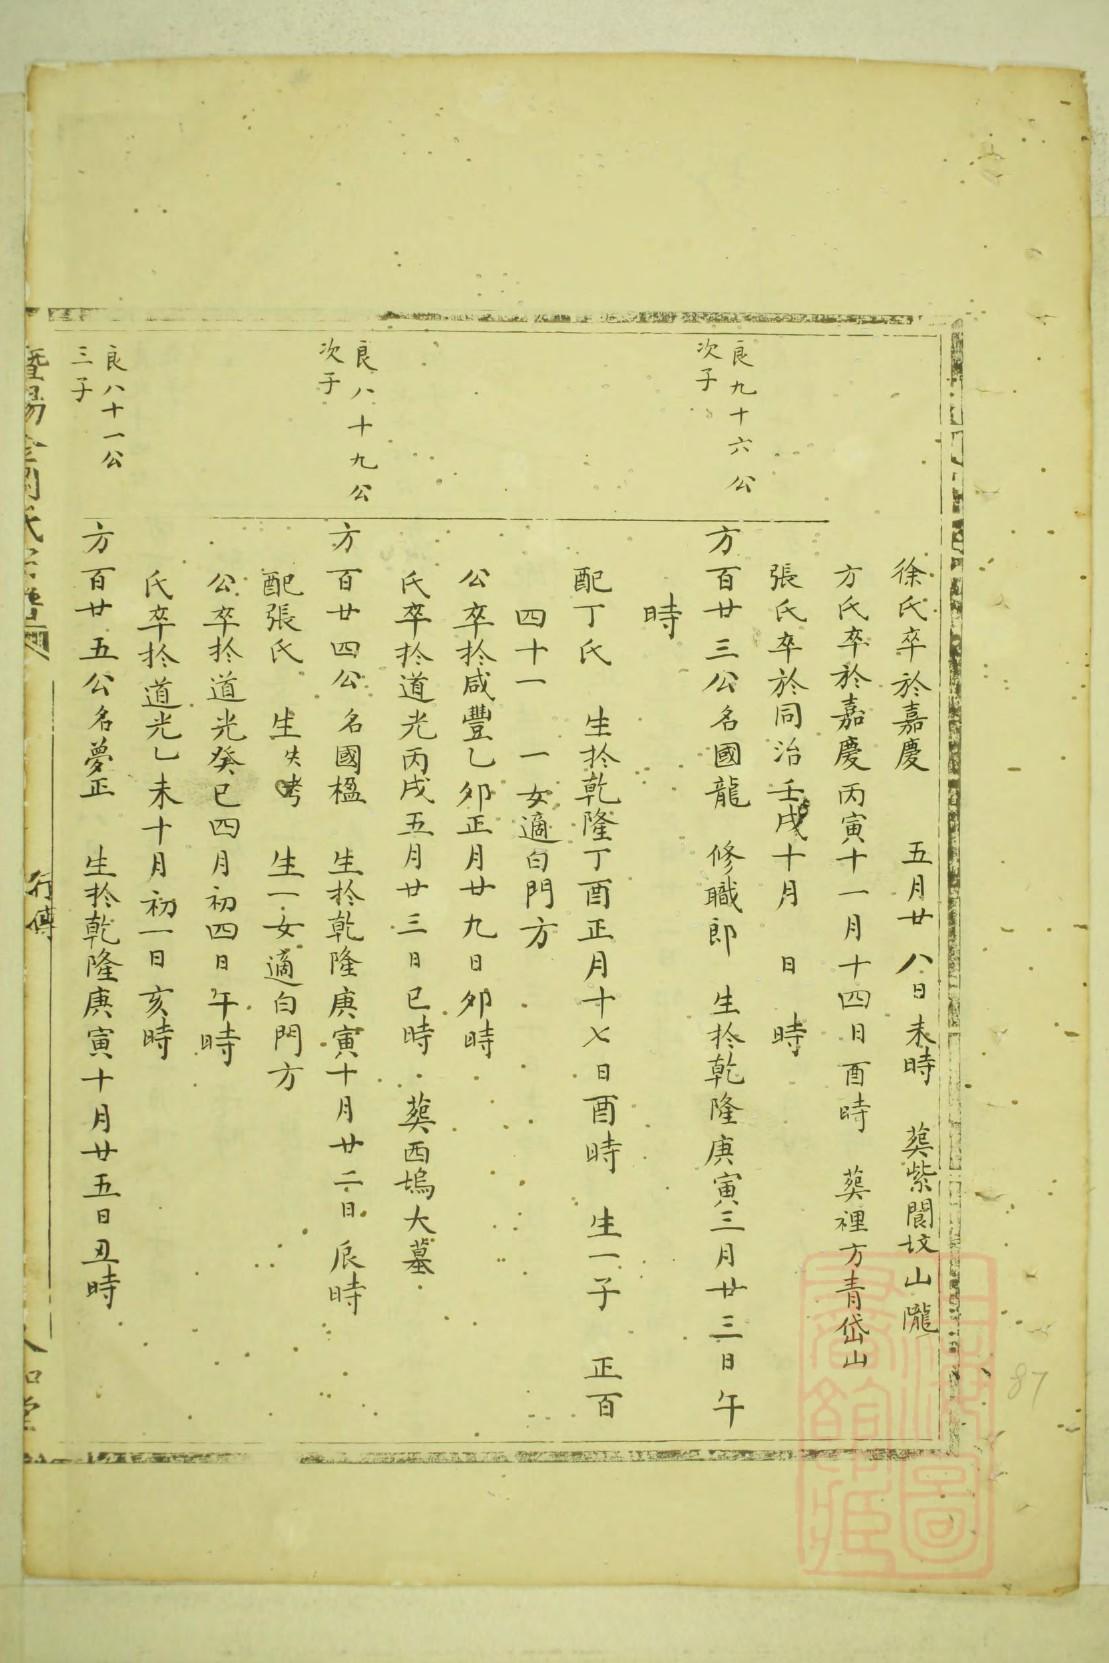 徐氏卒於嘉慶　五月廿八日未時　葬紫閬坟山隴
方氏卒於嘉慶丙寅十一月十四日酉時　葬裡方青岱山
張氏卒於同治壬戌十月　日　時
良九十六公
次子
方百廿三公名國龍　修職郎　生於乾隆庚寅三月廿三日午
時
配丁氏　生於乾隆丁酉正月十七日酉時　生一子　正百
四十一　一女適白門方
公卒於咸豐乙卯正月廿九日卯時
氏卒於道光丙戌五月廿三日巳時　葬西塢大墓
良八十九公
次子
方百廿四公名國楹　生於乾隆庚寅十月廿二日辰時
配張氏　生失考　生一女適白門方
公卒於道光癸巳四月初四日午時
氏卒於道光乙未十月初一日亥時
良八十一公
三子
方百廿五公名夢正　生於乾隆庚寅十月廿五日丑時
暨陽　周氏宗譜
行傳
87
上海圖書館藏